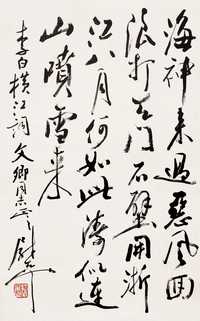 海神来过恶风回
浪打天门石壁开浙
江八月何如此涛似连
山喷雪来
李白横江词文乡同志